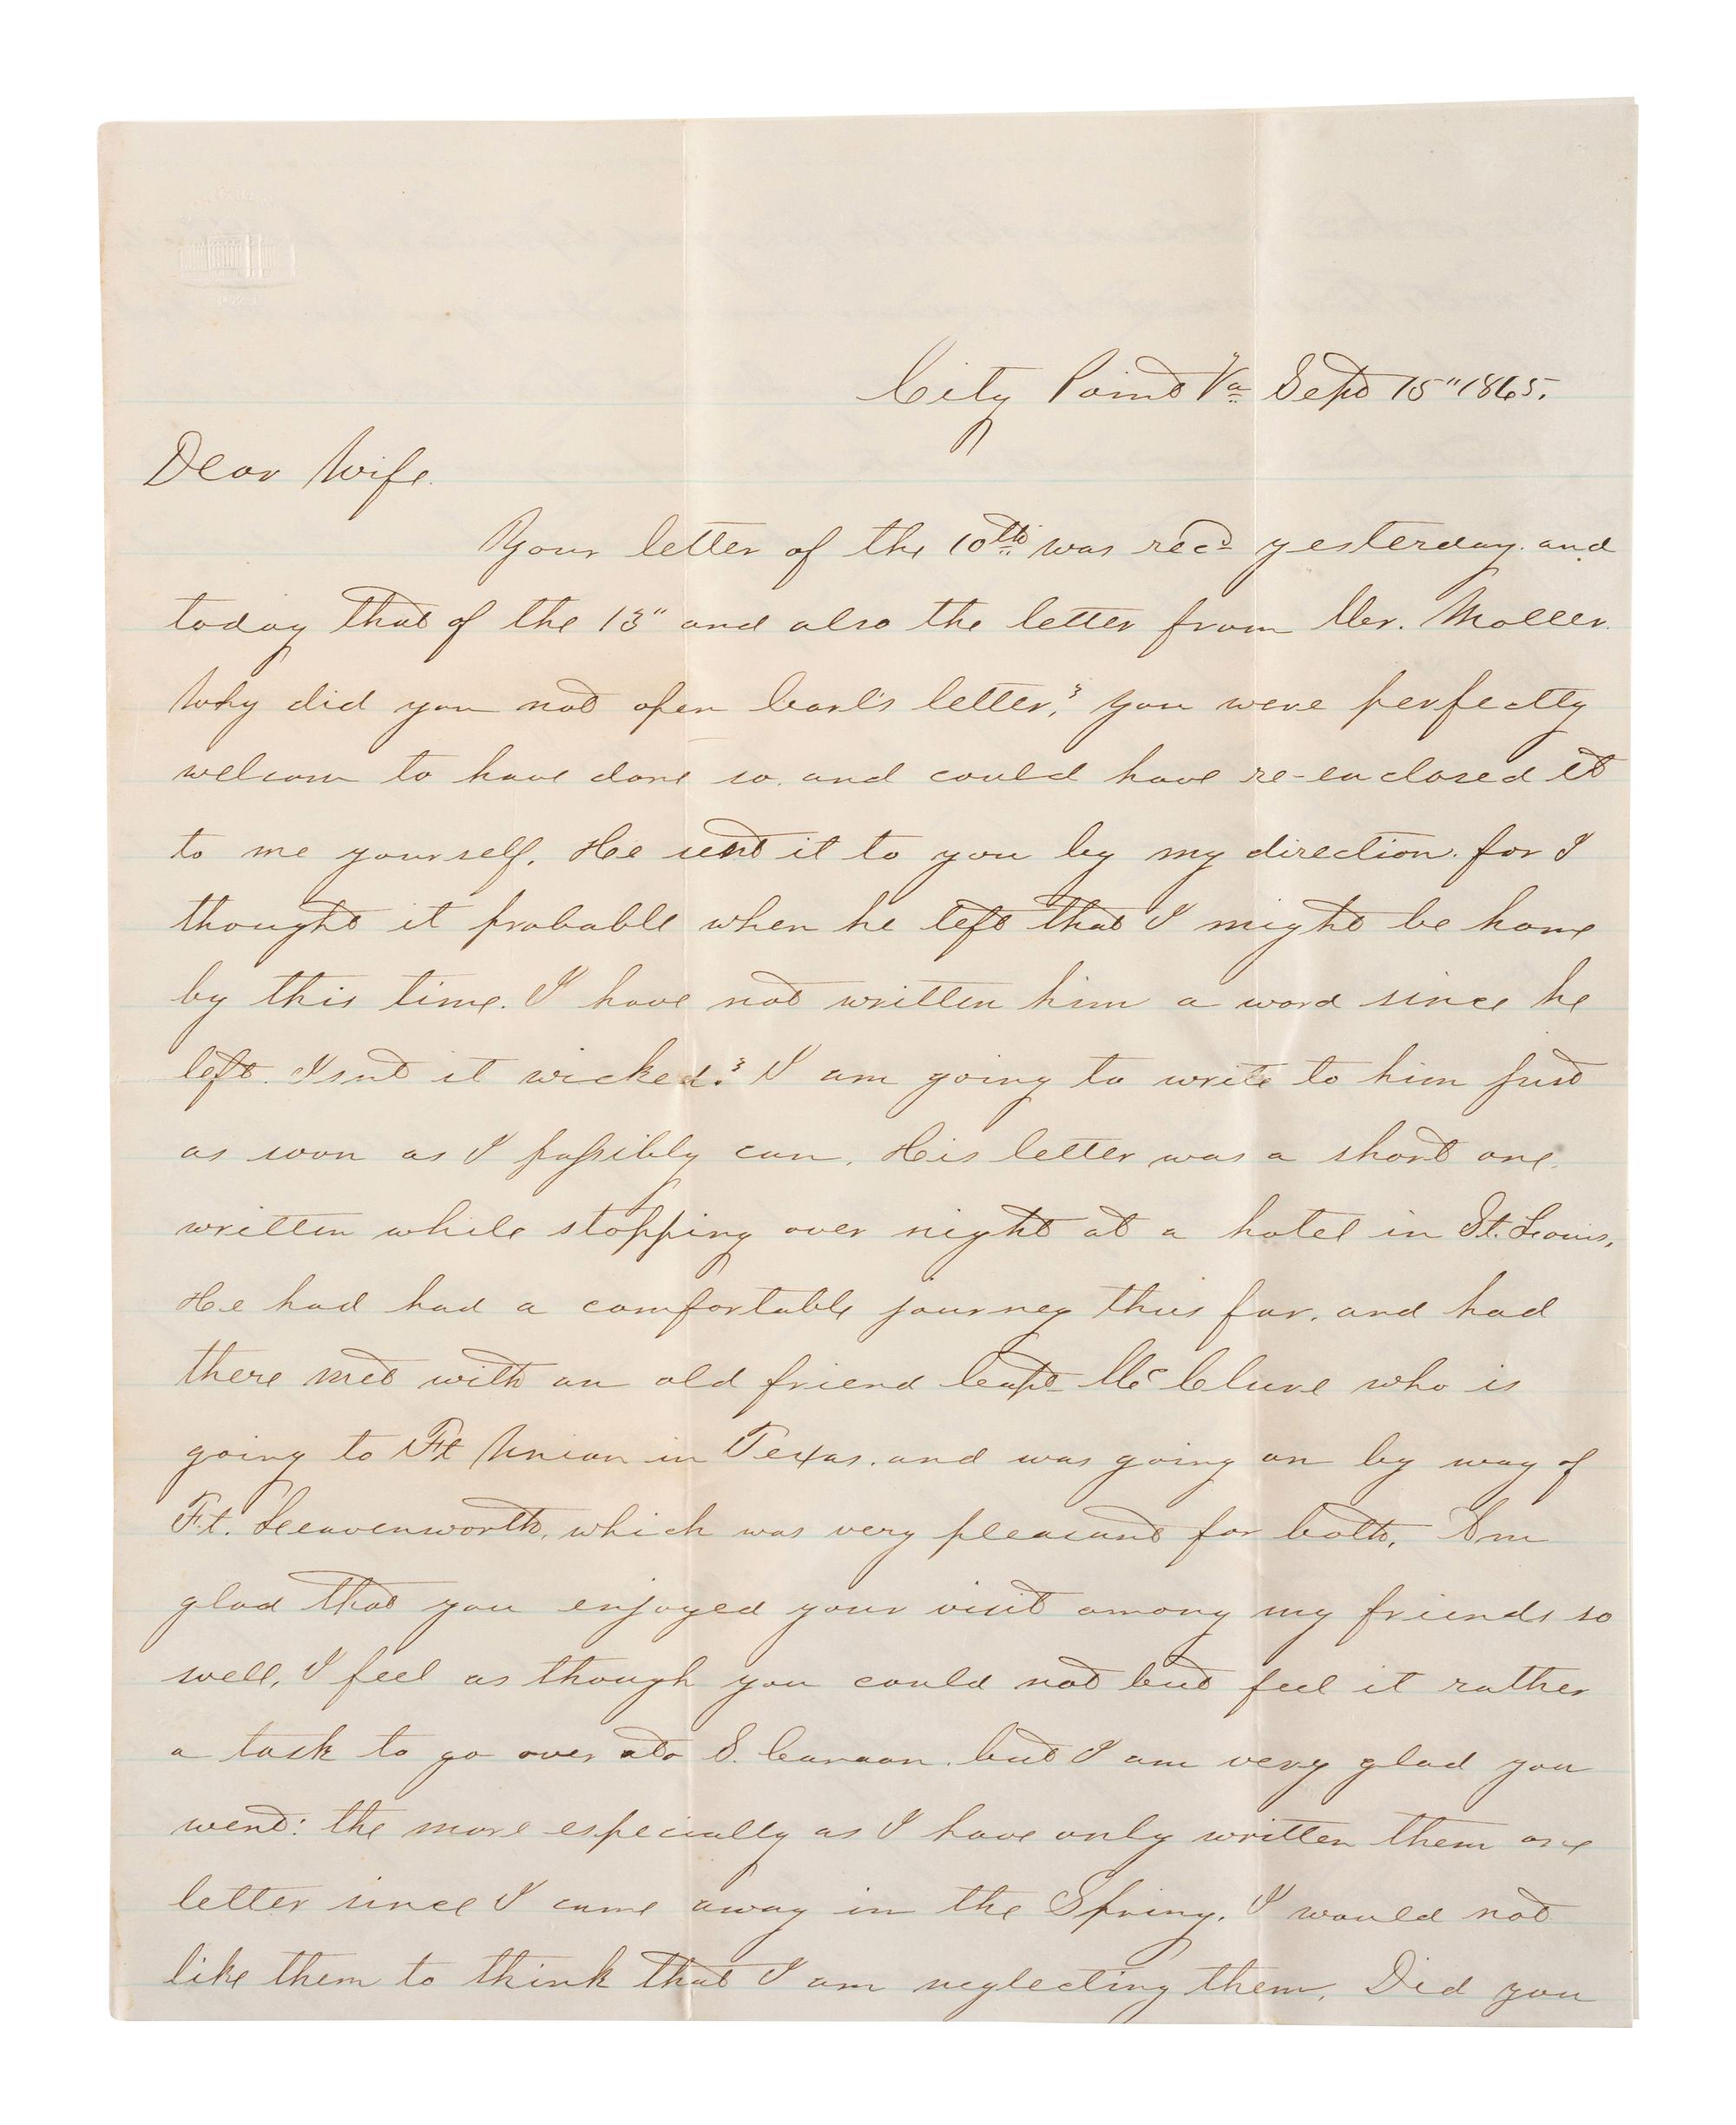 City Point Va Sept 15" 1865.
Dear Wife.
Your letter of the 10th was recd yesterday. and
today that of the 13" and also the letter from Mr. Moller.
Why did you not open Carl's letter? you were perfectly
welcom to have done so. and could have re-enclosed it
to me yourself. He sent it to you by my direction. for I
thought it probable when he left that I might be home
by this time. I have not written him a word since he
left. Isnt it wicked? I am going to write to him just
as soon as I possibly can. His letter was a short one.
written while stopping over night at a hotel in St. Louis.
He had had a comfortable journey thus far. and had
there met with an old friend Capt McClure who is
going to Ft Union in Texas. and was going on by way of
Ft. Leavenworth, which was very pleasant for both. Am
glad that you enjoyed your visit among my friends so
well, I feel as though you could not but feel it rather
a task to go over to S. Canaan. but I am very glad you
went: the more especially as I have only written them one
letter since I came away in the Spring. I would not
like them to think that I am neglecting them. Did you